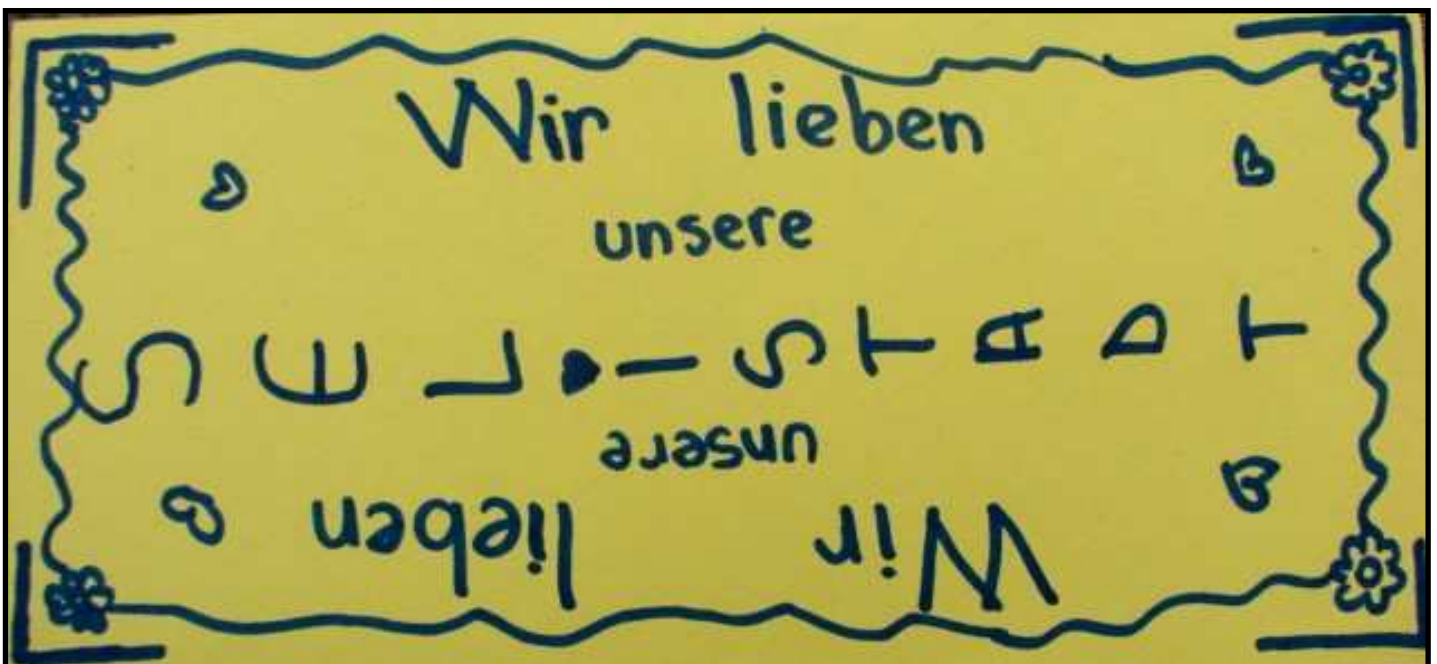 Wir lieben
unsere
SELISTADT
unsere
Wir lieben